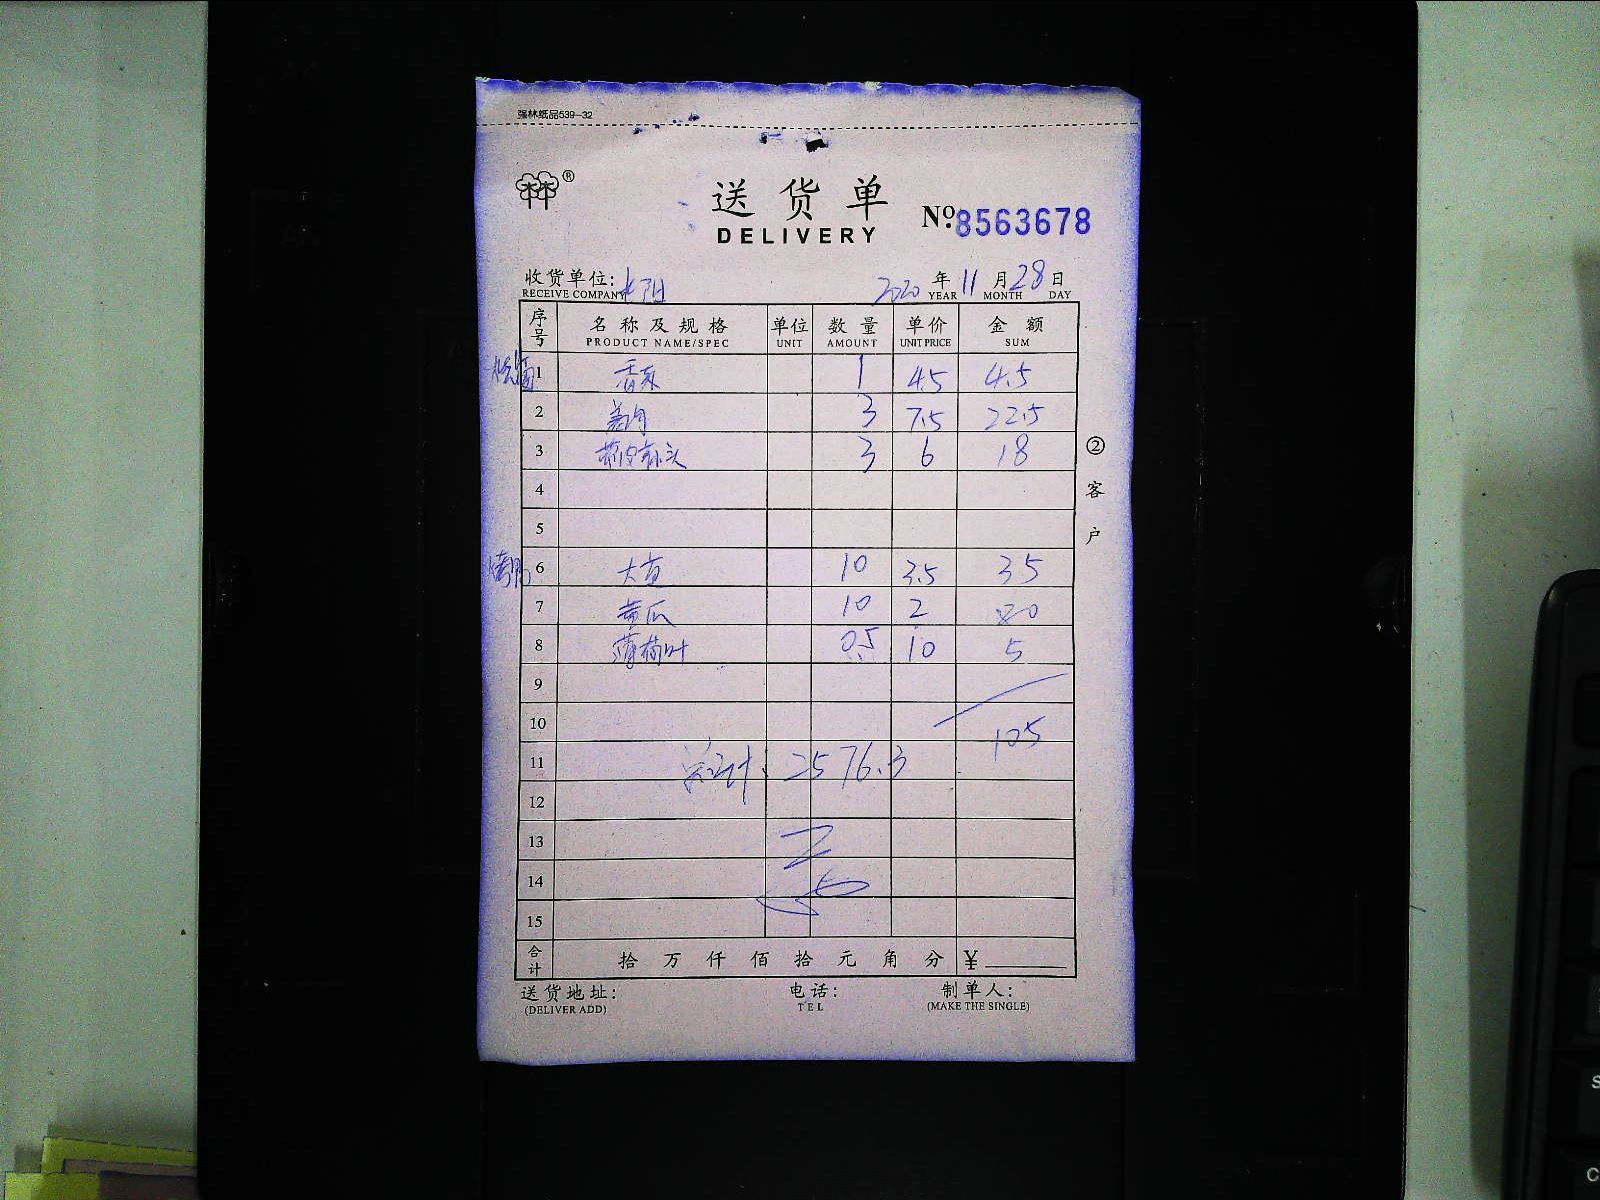 强林纸品539-32
林林®
送货单
DELIVERY
No.8563678
收货单位: 2020年11月28日
RECEIVE COMPANY YEAR MONTH DAY
序号 名称及规格 单位 数量 单价 金额
PRODUCT NAME/SPEC UNIT AMOUNT UNIT PRICE SUM
1 香菜 1 4.5 4.5
2 姜肉 3 7.5 22.5
3 3 6 18
4
5
6 大豆 10 3.5 35
7 黄瓜 10 2 20
8 薄荷叶 0.5 10 5
9
10 105
11 总计: 2576.3
12
13
14
15
合计 拾万仟佰拾元角分 ¥
②客户
送货地址: 电话: 制单人:
(DELIVER ADD) TEL (MAKE THE SINGLE)
S
C